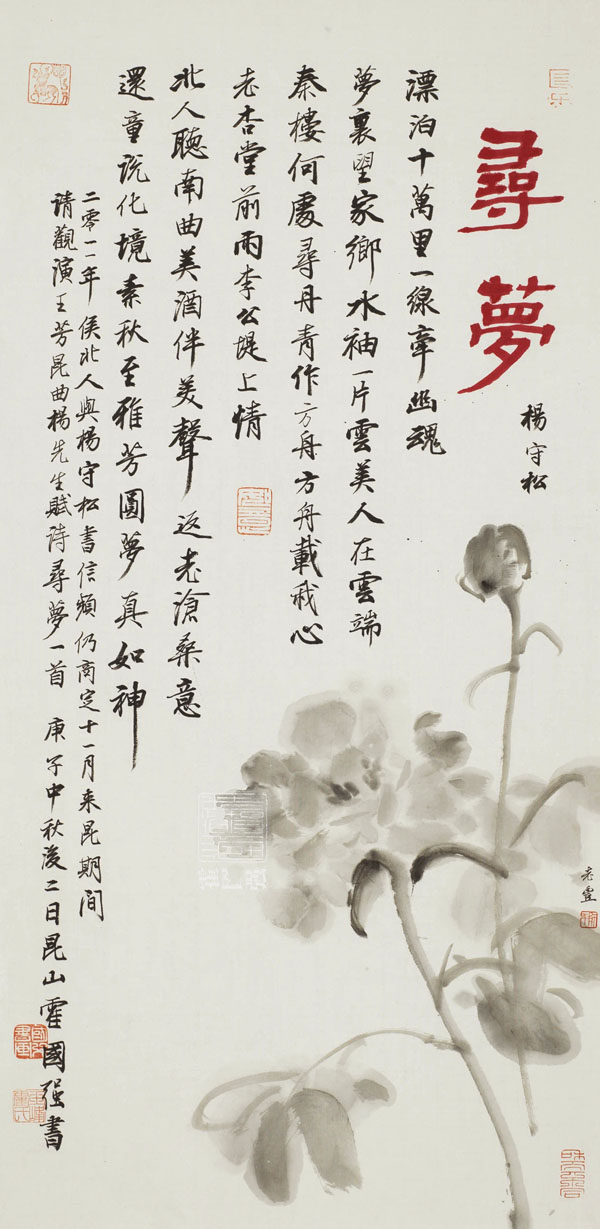 尋夢
楊守松
漂泊十萬里一線牽幽魂
夢裏望家鄉水袖一片雲美人在雲端
秦樓何處尋丹青作方舟方舟載我心
老杏堂前雨李公堤上情
北人聽南曲美酒伴美聲返老滄桑意
還童説化境素秋至雅芳圓夢真如神
二零一一年侯北人與楊守松書信頻仍商定十一月来昆期间
请觀演王芳昆曲楊先生賦诗尋夢一首 庚子中秋後二日昆山霍國强書